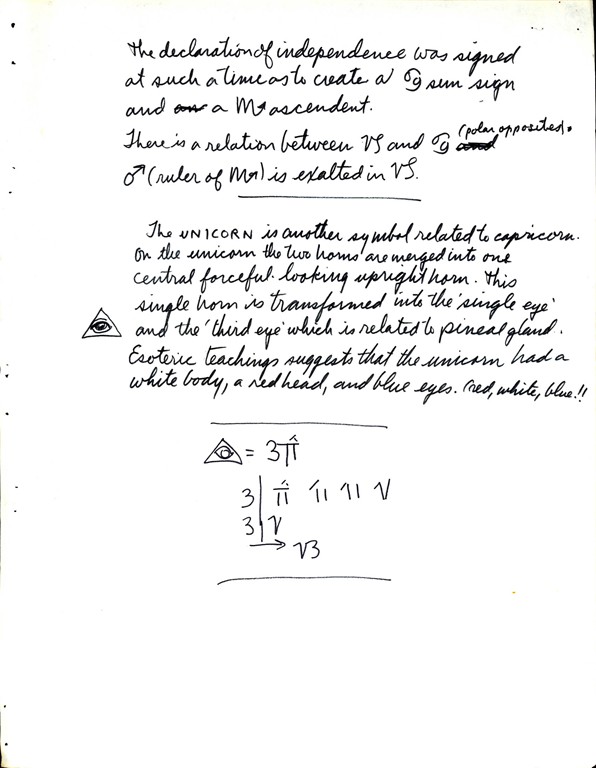 The declaration of independence was signed
at such a time as to create a ♋ sun sign
and a ♏ ascendent.
There is a relation between ♑ and ♋ (polar opposites).
♂ (ruler of ♏) is exalted in ♑.
The UNICORN is another symbol related to capricorn.
On the unicorn the two horns are merged into one
central forceful looking upright horn. This
single horn is transformed into the 'single eye'
and the 'third eye' which is related to pineal gland.
Esoteric teachings suggests that the unicorn had a
white body, a red head, and blue eyes. (red, white, blue!!
= 3π
3 | π
3 | V
→ V3